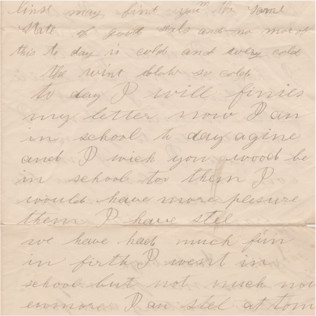 lines may find you the same
state of good and no more
this to day is cold and every cold
the wint blob so cold
to day I will finies
my letter now I am
in school to day agine
and I wich you wood be
in school to them I
would have more plesure
them I have stel
we have had much fun
in firth I went in
school but not much now
enmore I am stel at tom